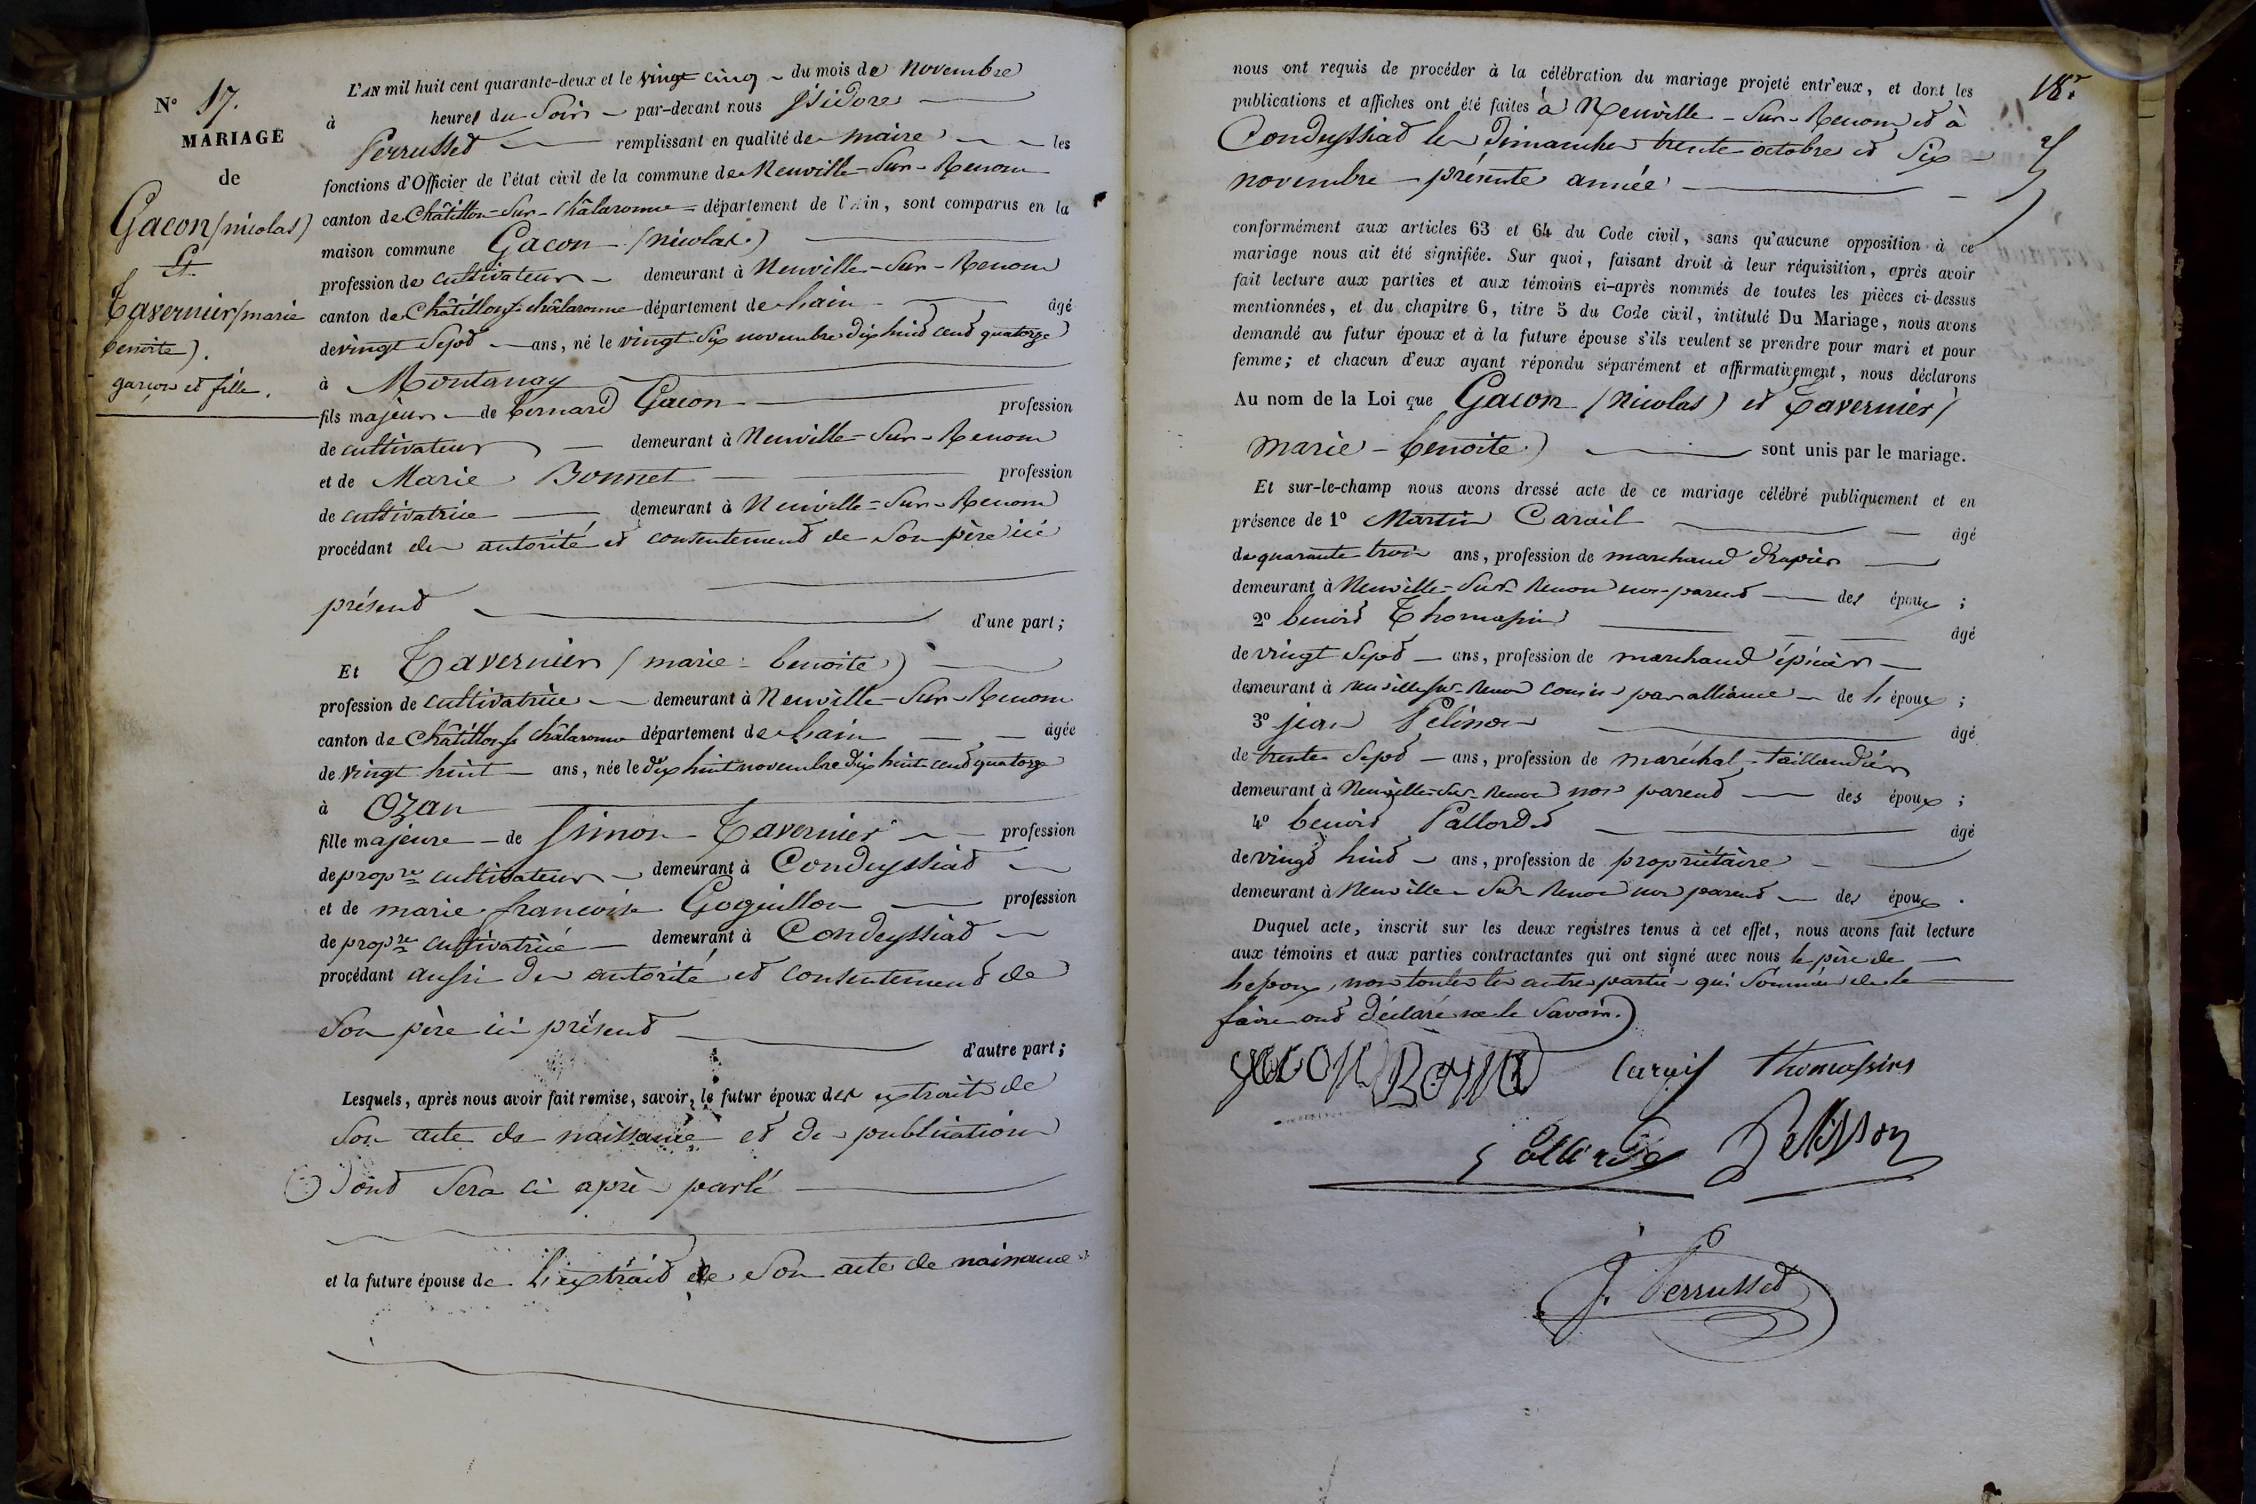 N° 17.
MARIAGE
de
Gacon (nicolas)
Et
Tavernier (marie
benoite).
garçon et fille.
L'AN mil huit cent quarante-deux et le vingt cinq du mois de novembre
à heures du Soir par-devant nous Isidore
Perrusset remplissant en qualité de maire les
fonctions d'Officier de l'état civil de la commune de Neuville-Sur-Renom
canton de Châtillon-Sur-Châlaronne département de l'Ain, sont comparus en la
maison commune Gacon (nicolas)
profession de cultivateur demeurant à Neuville-Sur-Renom
canton de Châtillon s châlaronne département de lain âgé
de vingt Sept ans, né le vingt Six novembre dix huit cent quatorze
à Montanay
fils majeur de bernard Gacon profession
de cultivateur demeurant à Neuville-Sur-Renom
et de Marie Bonnet profession
de cultivatrice demeurant à Neuville-Sur-Renom
procédant de autorité et consentement de Son père ici
présent d'une part;
Et Tavernier (marie benoite)
profession de cultivatrice demeurant à Neuville-Sur-Renom
canton de Châtillon s châlaronne département de lain âgée
de vingt huit ans, née le dix huit novembre dix huit cent quatorze
à Ozan
fille majeure de Simon Tavernier profession
de propre cultivateur demeurant à Condeyssiat
et de marie francoise Goguillon profession
de propre cultivatrice demeurant à Condeyssiat
procédant aussi de autorité et consentement de
Son père ici présent d'autre part;
Lesquels, après nous avoir fait remise, savoir, le futur époux des extraits de
Son acte de naissance et de publication
dont Sera ci après parlé
et la future épouse de l'extrait de Son acte de naissance
18.
nous ont requis de procéder à la célébration du mariage projeté entr'eux, et dont les
publications et affiches ont été faites à Neuville-Sur-Renom et à
Condeyssiat les Dimanche trente octobre et Six
novembre présente année
conformément aux articles 63 et 64 du Code civil, sans qu'aucune opposition à ce
mariage nous ait été signifiée. Sur quoi, faisant droit à leur réquisition, après avoir
fait lecture aux parties et aux témoins ci-après nommés de toutes les pièces ci-dessus
mentionnées, et du chapitre 6, titre 5 du Code civil, intitulé Du Mariage, nous avons
demandé au futur époux et à la future épouse s'ils veulent se prendre pour mari et pour
femme; et chacun d'eux ayant répondu séparément et affirmativement, nous déclarons
Au nom de la Loi que Gacon (Nicolas) et Tavernier (
marie-benoite) sont unis par le mariage.
Et sur-le-champ nous avons dressé acte de ce mariage célébré publiquement et en
présence de 1° Martin Carail âgé
de quarante trois ans, profession de marchand drapier
demeurant à Neuville-Sur-Renom non parent des époux;
2° benoit Thomassin âgé
de vingt Sept ans, profession de marchand épicier
demeurant à neuville Sur Renom cousin par alliance de l'époux;
3° jean Pelisson âgé
de trente Sept ans, profession de maréchal-taillandier
demeurant à Neuville-Sur-Renom non parent des époux;
4° benoit Pallordet âgé
de vingt huit ans, profession de propriétaire
demeurant à Neuville-Sur Renom non parent des époux.
Duquel acte, inscrit sur les deux registres tenus à cet effet, nous avons fait lecture
aux témoins et aux parties contractantes qui ont signé avec nous le père de
lepoux, non toutes les autres partie qui Sommées de le
faire ont déclaré ne le Savoir.
Carail Thomassin
Pelisson
J. Perrusset